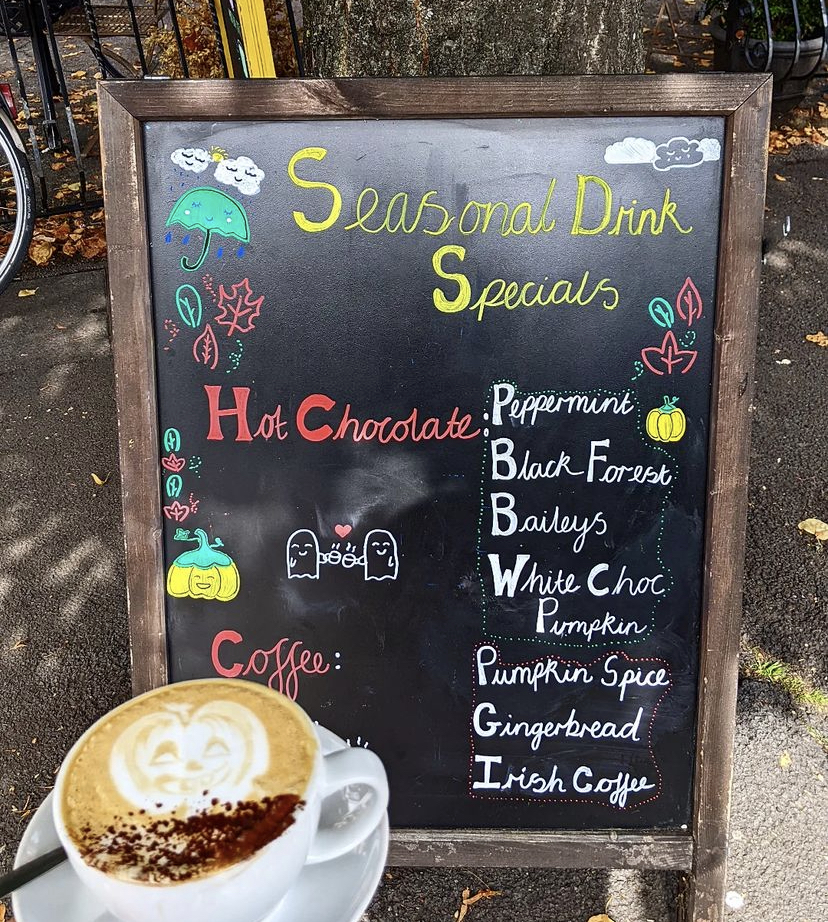 Seasonal Drink
Specials
Hot Chocolate:
Peppermint
Black Forest
Baileys
White Choc
Pumpkin
Coffee:
Pumpkin Spice
Gingerbread
Irish Coffee